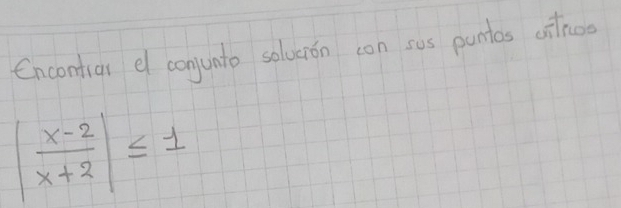 Encontrar el conjunto solución con sus puntos críticos
| x-2 / x+2 | ≤ 1